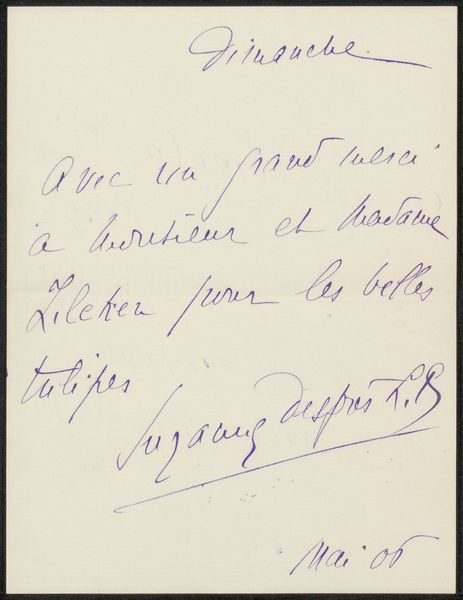 Dimanche
Avec un grand merci
à Monsieur et Madame
Zilcken pour les belles
tulipes
Suzanne Desprès L.P
Mai 06